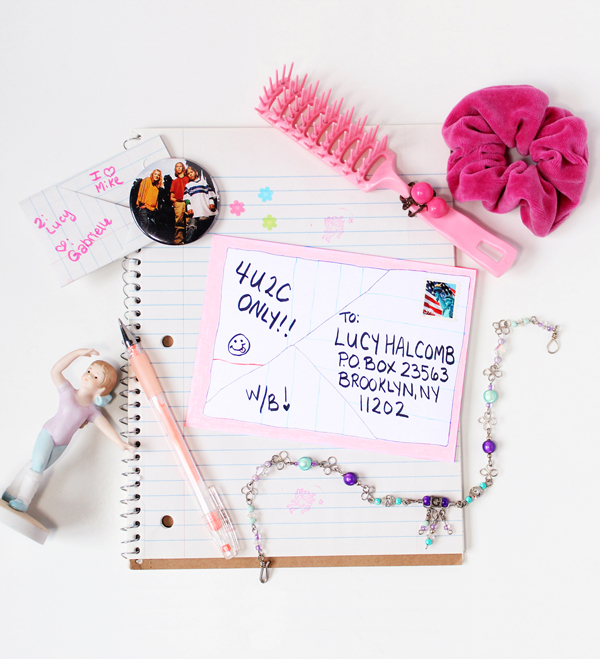 I ♡
Mike
2: Lucy
♡: Gabrielle
4U2C
ONLY!!
W/B!
TO:
LUCY HALCOMB
P.O. BOX 23563
BROOKLYN, NY
11202